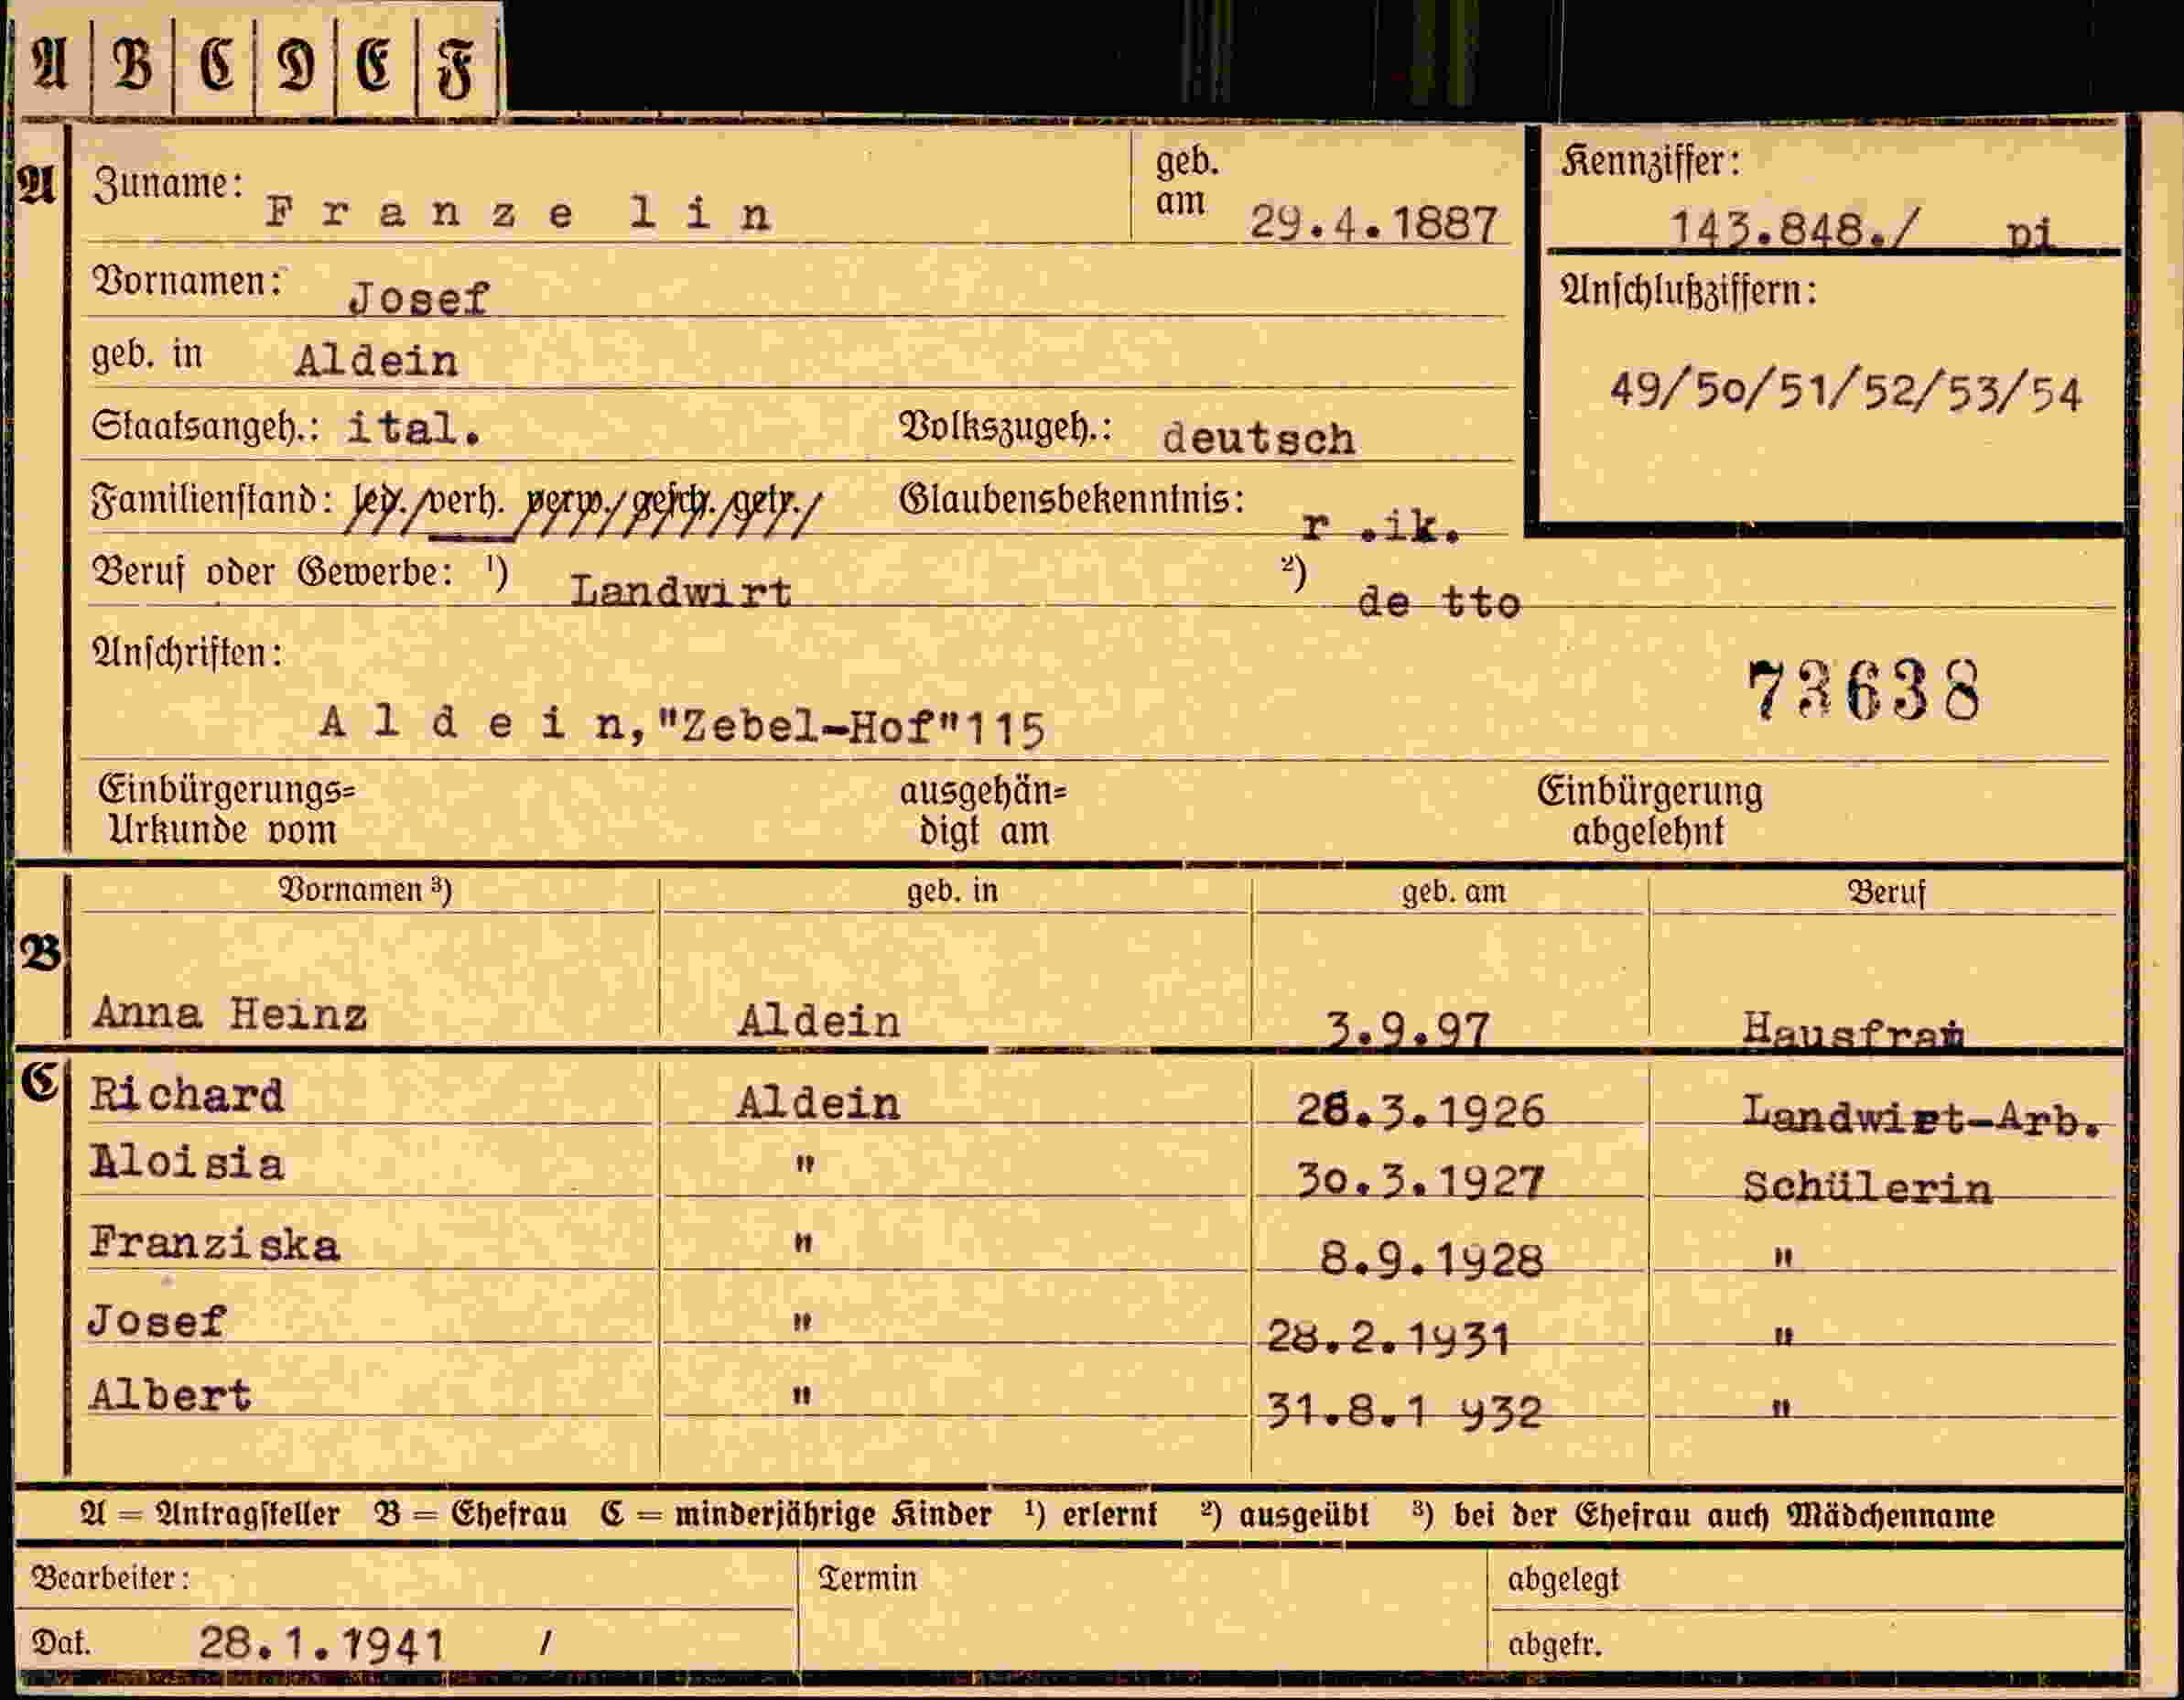 A B C D E F
A Zuname: Franzelin geb. am 29.4.1887 Kennziffer: 143.848./ pi
Vornamen: Josef Anschlußziffern:
geb. in Aldein 49/50/51/52/53/54
Staatsangeh.: ital. Volkszugeh.: deutsch
Familienstand: led./verh. verw./gesch./getr./ Glaubensbekenntnis: r .ik.
Beruf oder Gewerbe: ¹) Landwirt ²) de tto
Anschriften:
73638
Aldein,"Zebel-Hof"115
Einbürgerungs= ausgehän= Einbürgerung
Urkunde vom digt am abgelehnt
Vornamen ³) geb. in geb. am Beruf
B
Anna Heinz Aldein 3.9.97 Hausfrau
C Richard Aldein 28.3.1926 Landwirt-Arb.
Aloisia " 30.3.1927 Schülerin
Franziska " 8.9.1928 "
Josef " 28.2.1931 "
Albert " 31.8.1 932 "
A = Antragsteller B = Ehefrau C = minderjährige Kinder ¹) erlernt ²) ausgeübt ³) bei der Ehefrau auch Mädchenname
Bearbeiter: Termin abgelegt
Dat. 28.1.1941 / abgetr.